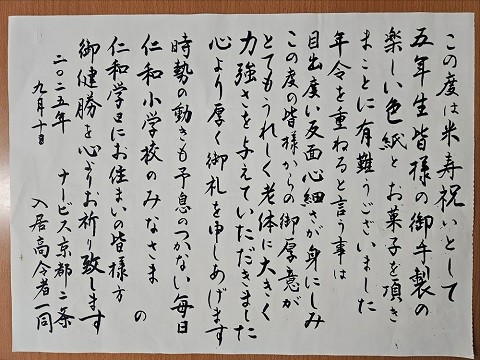 この度は米寿祝いとして
五年生皆様の御手製の
楽しい色紙とお菓子を頂き
まことに有難うございました
年令を重ねると言う事は
目出度い反面心細さが身にしみ
この度の皆様からの御厚意が
とてもうれしく老体に大きく
力強さを与えていただきました
心より厚く御礼を申しあげます
時勢の動きも予息のつかない毎日
仁和小学校のみなさま の
仁和学区にお住まいの皆様方
御健勝を心よりお祈り致します
二〇二五年 ナービス京都二条
九月十日 入居高令者一同